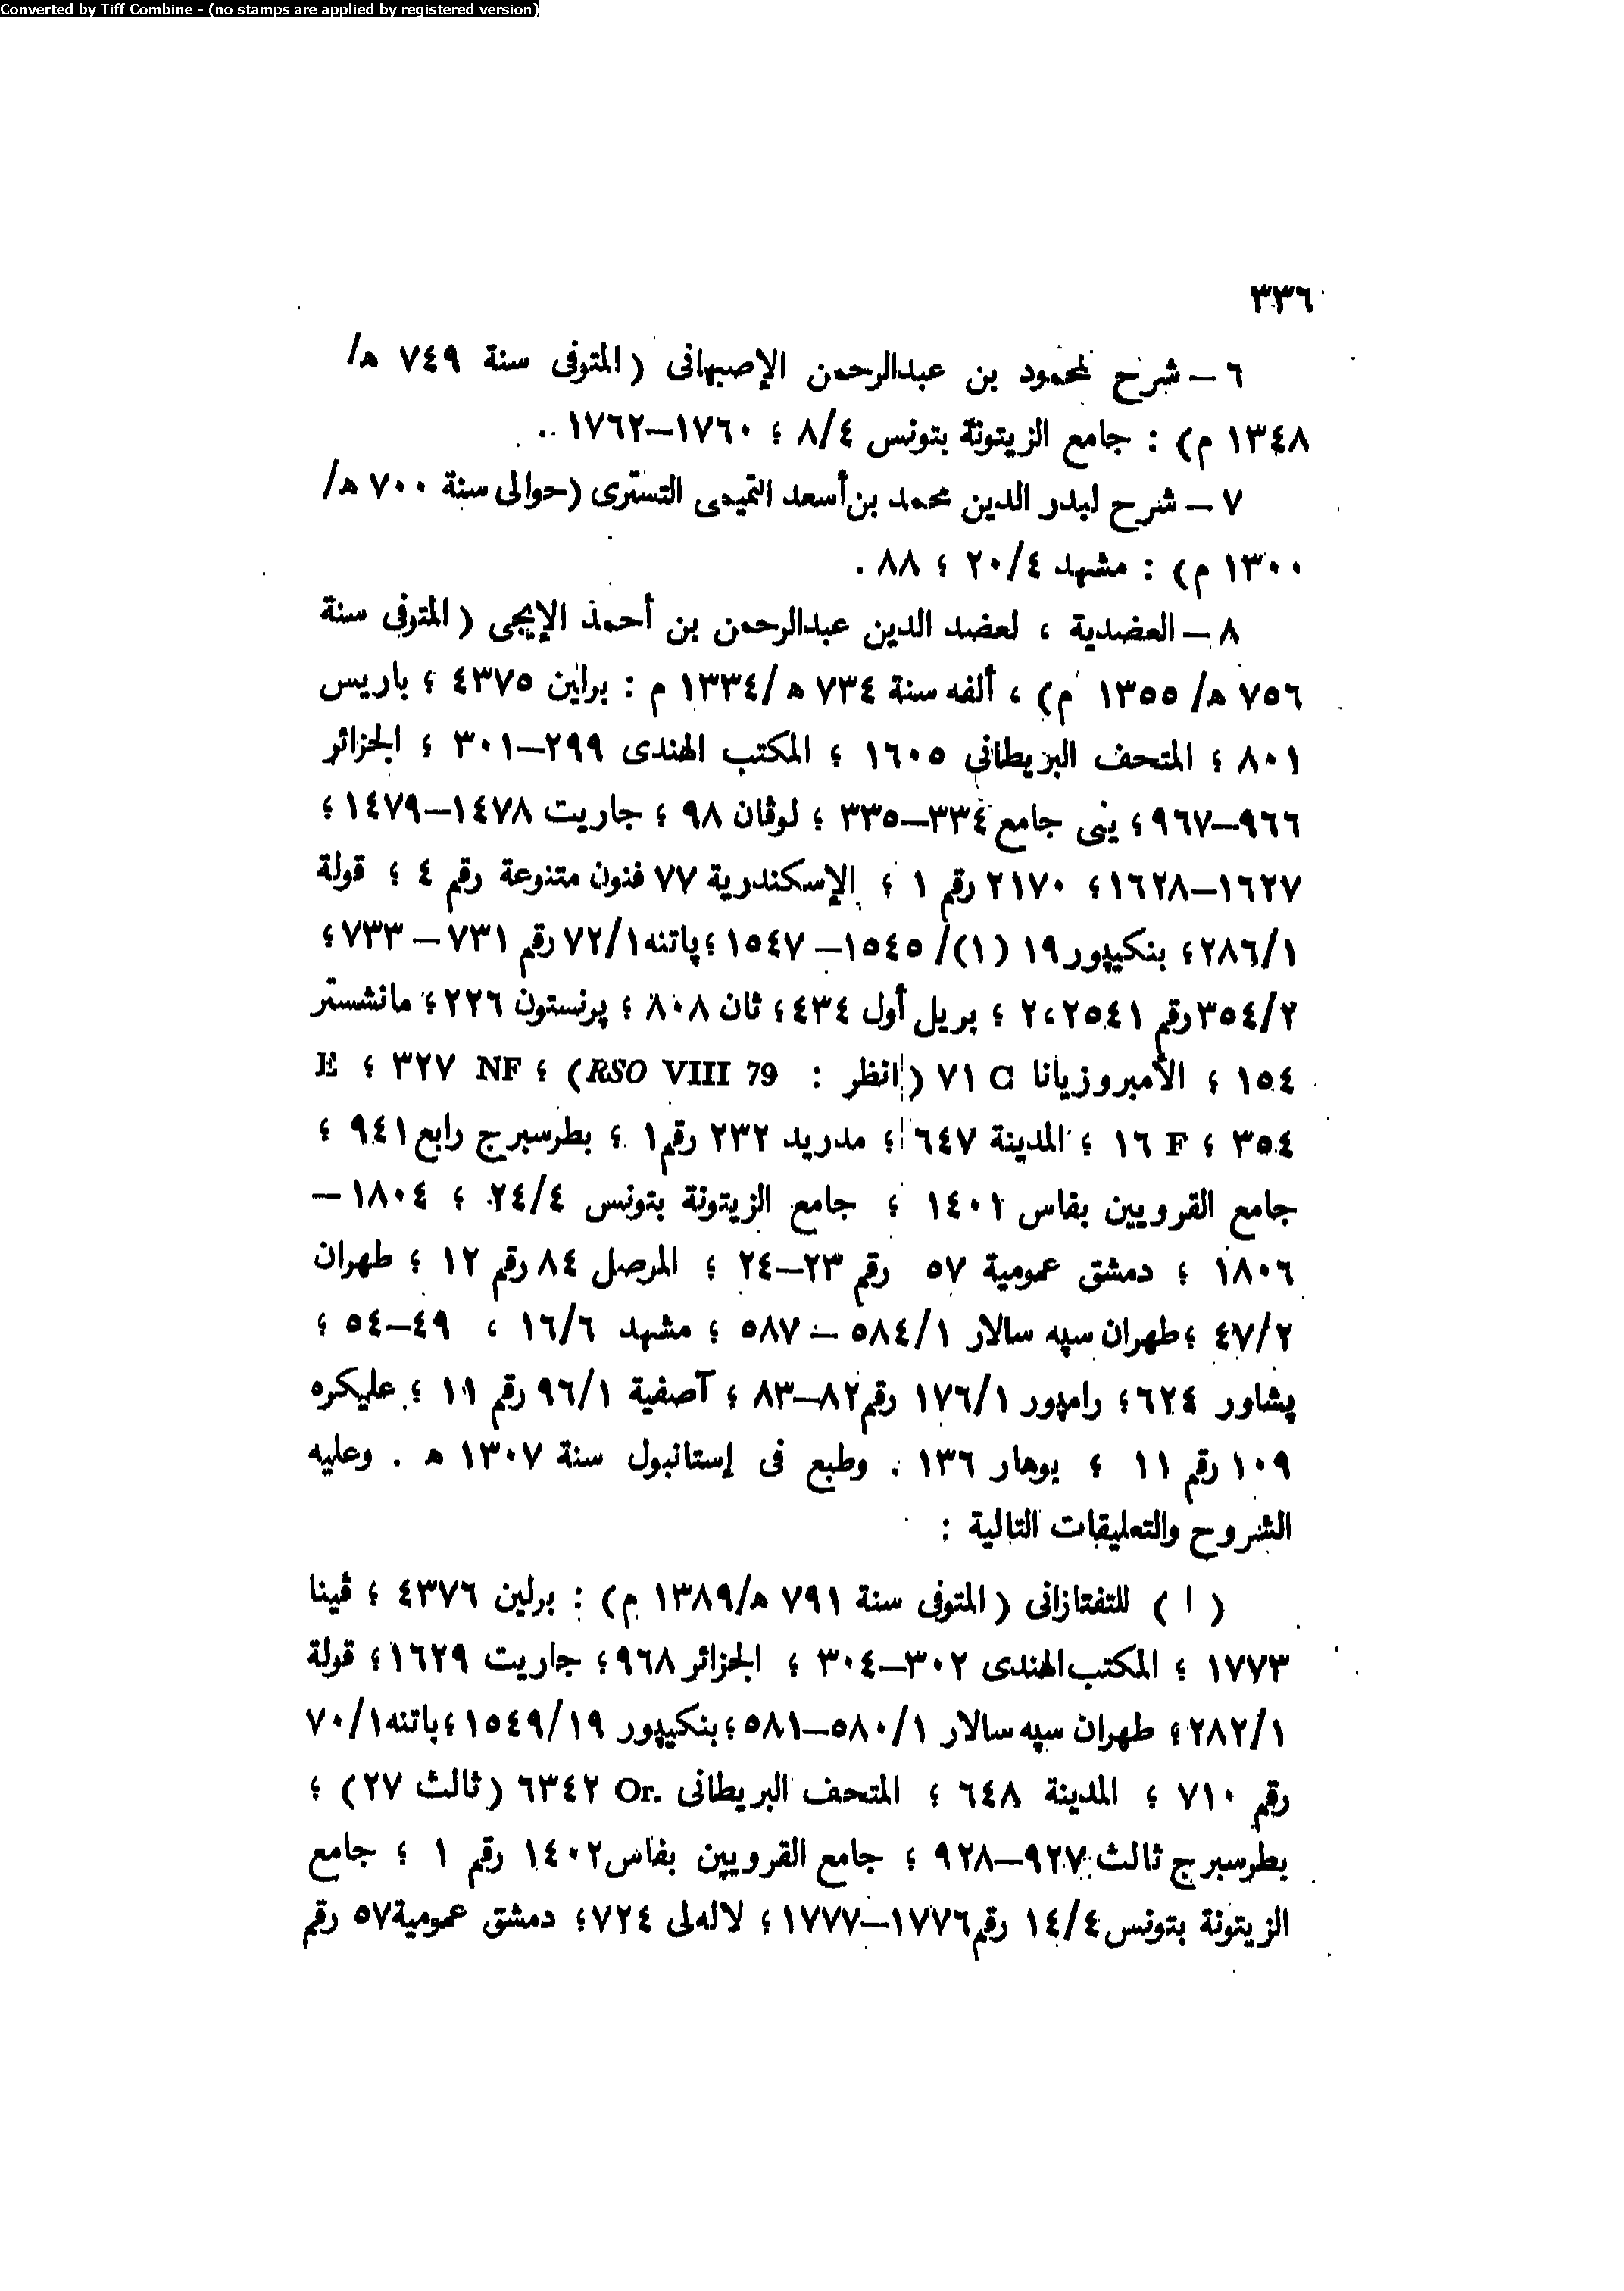 Converted by Tiff Combine - (no stamps are applied by registered version)
٣٣٦
٦ – شرح لمحمود بن عبدالرحمن الإصبهانى ( المتوفى سنة ٧٤٩ ه/
١٣٤٨ م) : جامع الزيتونة بتونس ٨/٤ ؛ ١٧٦٠–١٧٦٢ .
٧ – شرح لبدر الدين محمد بن أسعد التميمى التسترى (حوالى سنة ٧٠٠ ه/
١٣٠٠ م) : مشهد ٢٠/٤ ؛ ٨٨ .
٨ – العضدية ، لعضد الدين عبدالرحمن بن أحمد الإيجى ( المتوفى سنة
٧٥٦ ه/ ١٣٥٥ م) ، ألفه سنة ٧٣٤ ه/١٣٣٤ م : برلين ٤٣٧٥ ؛ باريس
٨٠١ ؛ المتحف البريطانى ١٦٠٥ ؛ المكتب الهندى ٢٩٩–٣٠١ ؛ الجزائر
٩٦٦–٩٦٧ ؛ ينى جامع ٣٣٤–٣٣٥ ؛ لوڤان ٩٨ ؛ جاريت ١٤٧٨–١٤٧٩ ؛
١٦٢٧–١٦٢٨ ؛ ٢١٧٠ رقم ١ ؛ الإسكندرية ٧٧ فنون متنوعة رقم ٤ ؛ قولة
٢٨٦/١ ؛ بنكيپور ١٩ (١)/ ١٥٤٥– ١٥٤٧ ؛ پاتنه ٧٢/١ رقم ٧٣١ – ٧٣٣ ؛
٣٥٤/٢ رقم ٢٥٤١ ،٢ ؛ بريل أول ٤٣٤ ؛ ثان ٨٠٨ ؛ پرنستون ٢٢٦ ؛ مانشستر
١٥٤ ؛ الأمبروزيانا C ٧١ (انظر : RSO VIII 79) ؛ NF ٣٢٧ ؛ E
٣٥٤ ؛ F ١٦ ؛ المدينة ٦٤٧ ؛ مدريد ٢٣٢ رقم ١ ؛ بطرسبرج رابع ٩٤١ ؛
جامع القرويين بفاس ١٤٠١ ؛ جامع الزيتونة بتونس ٢٤/٤ ؛ ١٨٠٤ –
١٨٠٦ ؛ دمشق عمومية ٥٧ رقم ٢٣–٢٤ ؛ المرصل ٨٤ رقم ١٢ ؛ طهران
٤٧/٢ ؛ طهران سپه سالار ٥٨٤/١ – ٥٨٧ ؛ مشهد ١٦/٦ ، ٤٩–٥٤ ؛
پشاور ٦٢٤ ؛ رامپور ١٧٦/١ رقم ٨٢–٨٣ ؛ آصفية ٩٦/١ رقم ١١ ؛ عليكره
١٠٩ رقم ١١ ؛ بوهار ١٣٦ . وطبع فى إستانبول سنة ١٣٠٧ ه . وعليه
الشروح والتعليقات التالية :
( ا ) للتفتازانى ( المتوفى سنة ٧٩١ ه/١٣٨٩ م) : برلين ٤٣٧٦ ؛ ڤينا
١٧٧٣ ؛ المكتب الهندى ٣٠٢–٣٠٤ ؛ الجزائر ٩٦٨ ؛ جاريت ١٦٢٩ ؛ قولة
٢٨٢/١ ؛ طهران سپه سالار ٥٨٠/١–٥٨١ ؛ بنكيپور ١٥٤٩/١٩ ؛ باتنه ٧٠/١
رقم ٧١٠ ؛ المدينة ٦٤٨ ؛ المتحف البريطانى Or. ٦٣٤٢ (ثالث ٢٧) ؛
بطرسبرج ثالث ٩٢٧–٩٢٨ ؛ جامع القرويين بفاس ١٤٠٢ رقم ١ ؛ جامع
الزيتونة بتونس ١٤/٤ رقم ١٧٧٦–١٧٧٧ ؛ لاله لى ٧٢٤ ؛ دمشق عمومية ٥٧ رقم